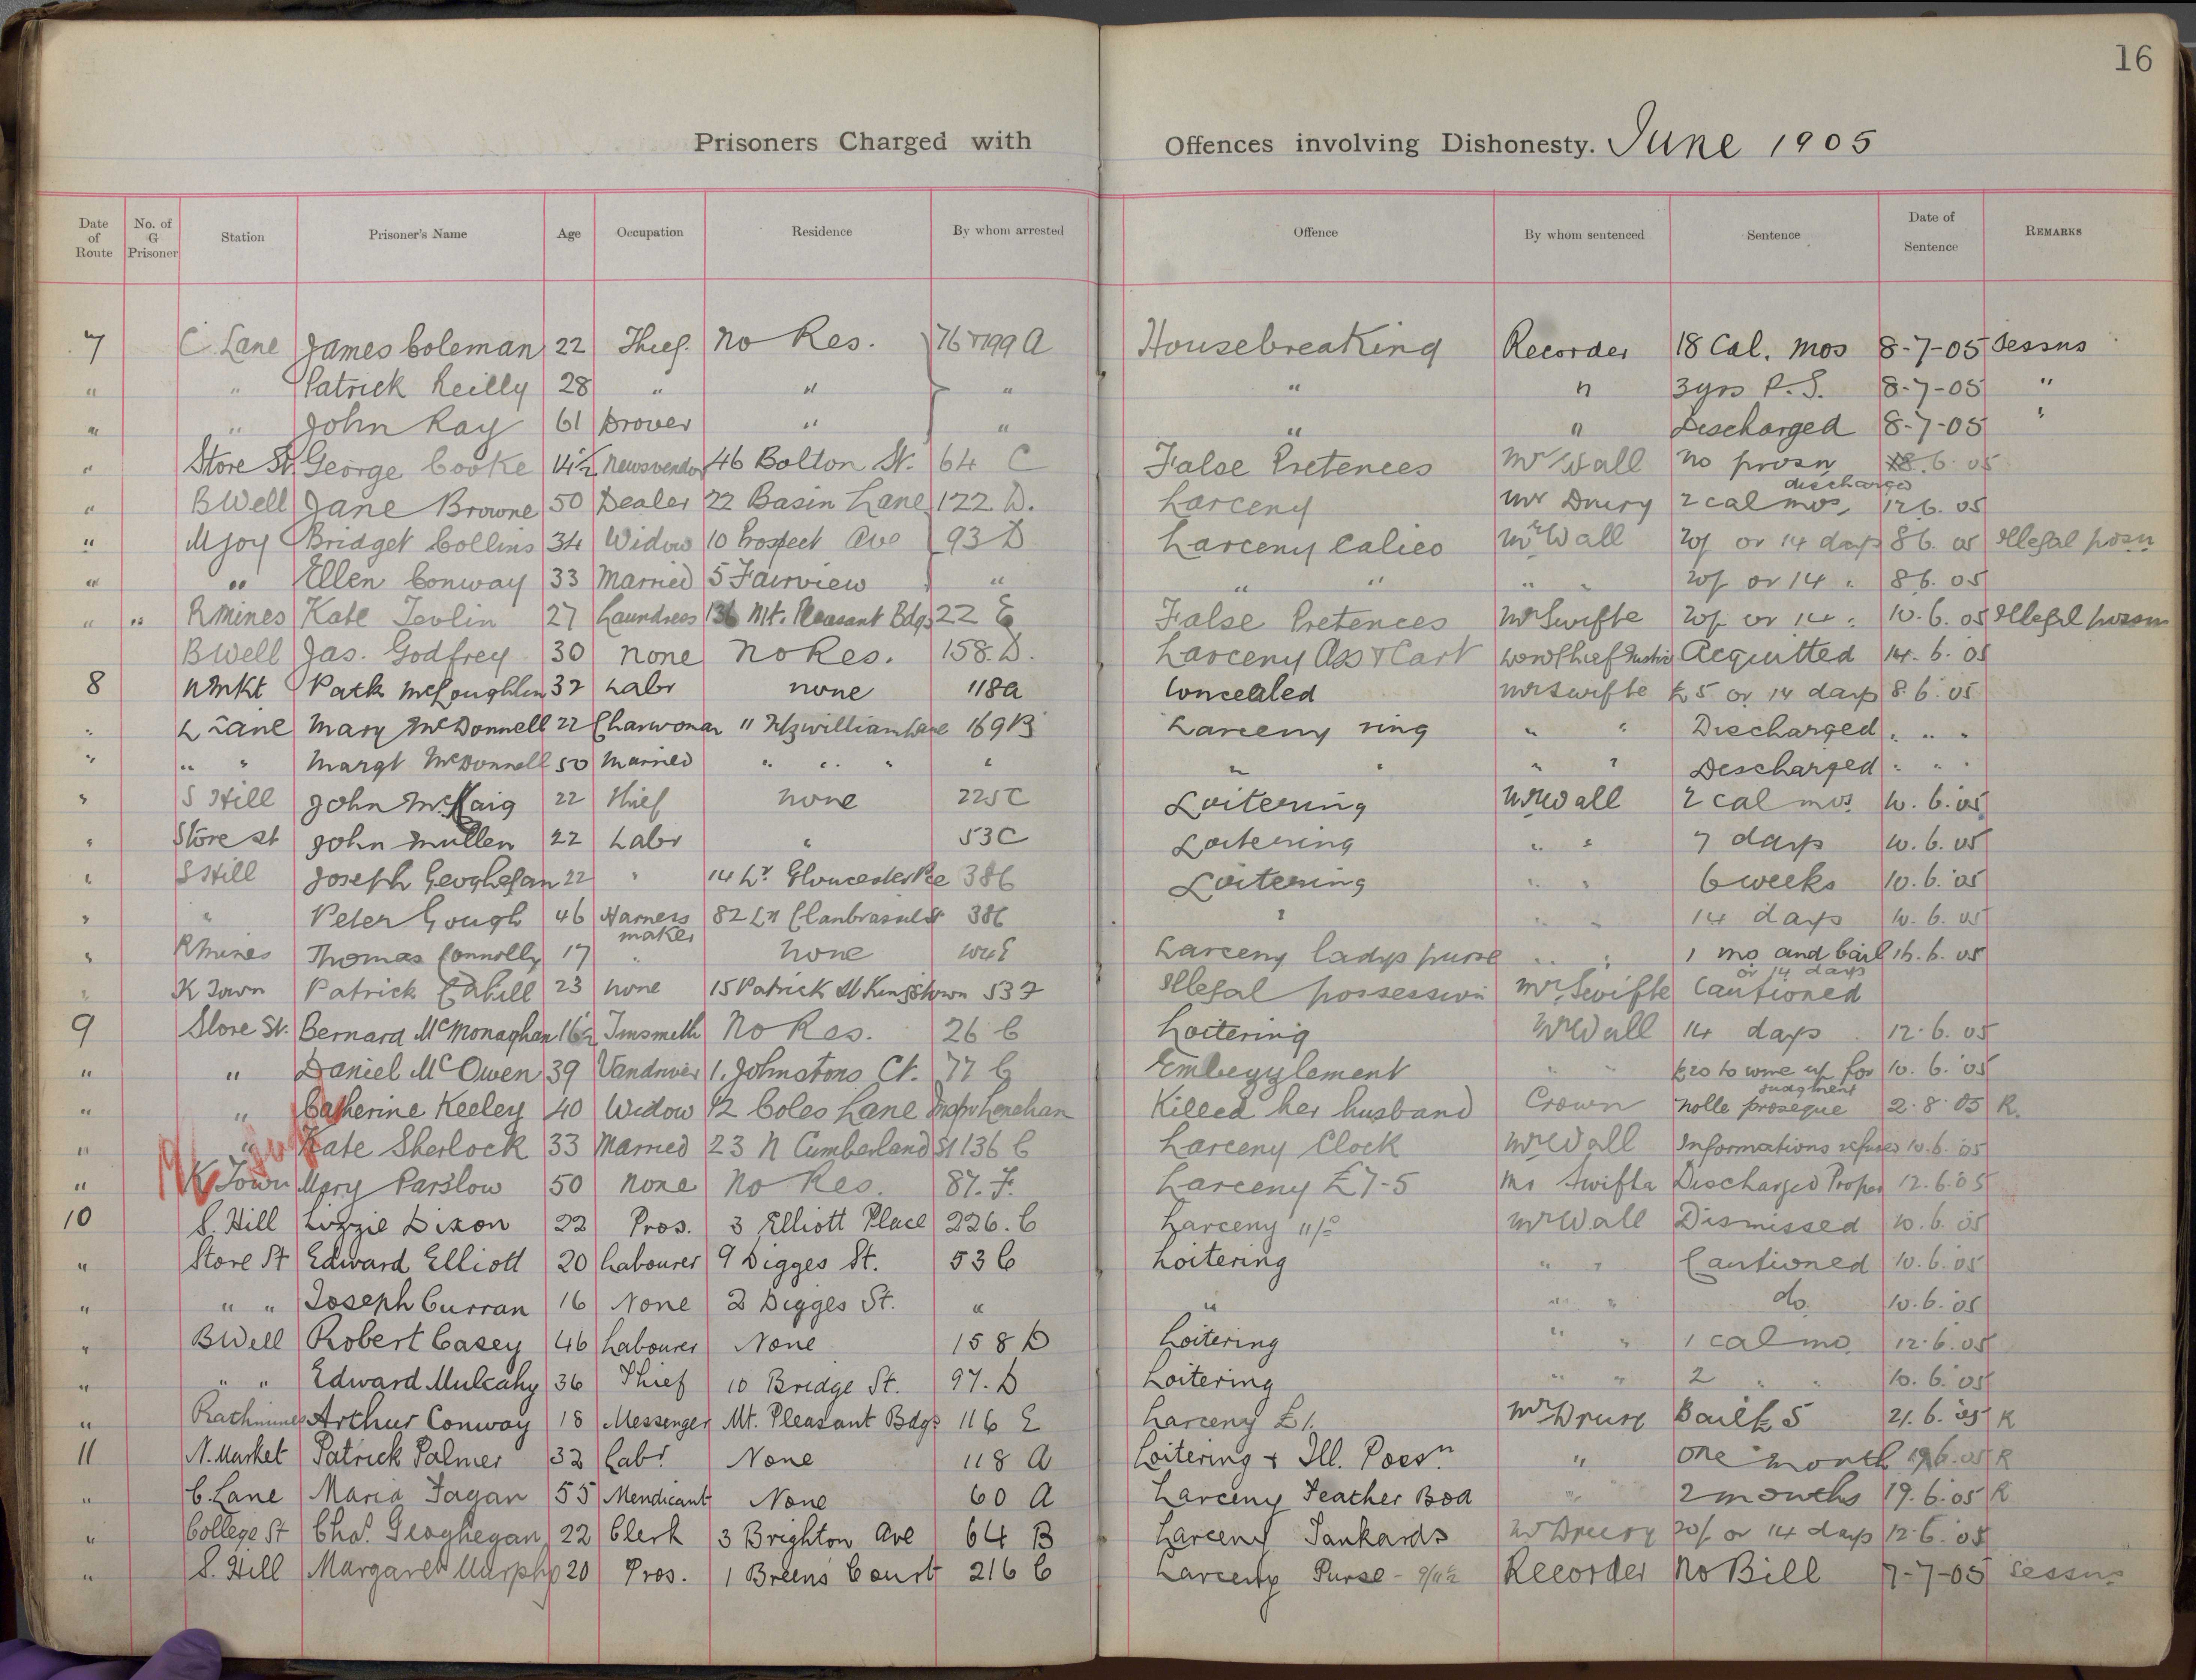 16
Prisoners Charged with Offences involving Dishonesty. June 1905
Date of Route No. of G Prisoner Station Prisoner's Name Age Occupation Residence By whom arrested Offence By whom sentenced Sentence Date of Sentence Remarks
7 C. Lane James Coleman 22 Thief. No Res. 76 + 199 A Housebreaking Recorder 18 Cal. mos 8-7-05 Sessns
" " Patrick Reilly 28 " " " " " 3 yrs P.S. 8-7-05 "
" " John Ray 61 Drover " " " " Discharged 8-7-05 "
" Store St George Cooke 14½ Newsvendor 46 Bolton St. 64 C False Pretences Mr Wall no prosn discharged 8.6.05
" BWell Jane Browne 50 Dealer 22 Basin Lane 122. D. Larceny Mr Drury 2 cal mos, 12 6. 05
" Mjoy Bridget Collins 34 Widow 10 Prospect Ave 93 D Larceny Calico Mr Wall 20/ or 14 days 8 6. 05 Illegal possn
" " Ellen Conway 33 Married 5 Fairview " " " " " 20/- or 14 " 8 6. 05
" " Rmines Kate Tevlin 27 Laundress 136 Mt. Pleasant Bdgs 22 E False Pretences Mr Swifte 20/- or 14 " 10. 6. 05 Illegal possn
BWell Jas. Godfrey 30 None No Res. 158. D. Larceny Ass & Cart Lord Chief Justice Acquitted 14. 6. 05
8 N Mkt Patk McLoughlin 32 Labr none 118 A Concealed Mr Swifte £5 or 14 days 8. 6. 05
" L Lane Mary McDonnell 22 Charwoman 11 Fitzwilliam Lane 169 B Larceny ring " " Discharged " " "
" " " Margt McDonnell 50 Married " " " " " " " " Discharged " " "
" S Hill John McKaig 22 Thief none 225 C Loitering Mr Wall 2 cal mos 10. 6. 05
" Store St John Mullen 22 Labr " 53 C Loitering " " 7 days 10. 6. 05
" S Hill Joseph Geoghegan 22 " 14 Lr. Gloucester Plce 38 C Loitering " " 6 weeks 10. 6. 05
" " Peter Gough 46 Harness maker 82 Lr Clanbrassil St 38 C " " " 14 days 10. 6. 05
" Rmines Thomas Connolly 17 " none Larceny ladys purse " " 1 mo and bail or 14 days 16. 6. 05
" K Town Patrick Cahill 23 none 15 Patrick St Kingstown 53 F Illegal possession Mr. Swifte Cautioned
9 Store St. Bernard McMonaghan 16½ Tinsmith No Res. 26 C Loitering Mr Wall 14 days 12. 6. 05
" " Daniel McOwen 39 Vandriver 1. Johnstons Ct. 77 C Embezzlement " " £20 to come up for judgment 10. 6. 05
" " Catherine Keeley 40 Widow 12 Coles Lane Inspr Lenehan Killed her husband Crown nolle proseque 2. 8 05 R.
" " Kate Sherlock 33 Married 23 N Cumberland St 136 C Larceny Clock Mr Wall Informations refused 10. 6. 05
" K Town Mary Parslow 50 None No Res. 87. F. Larceny £7-5 Mr Swifte Discharged 12. 6. 05
10 S. Hill Lizzie Dixon 22 Pros. 3 Elliott Place 226. C Larceny 11/- Mr Wall Dismissed 10. 6. 05
" Store St Edward Elliott 20 Labourer 9 Digges St. 53 C Loitering " " Cautioned 10. 6. 05
" " " Joseph Curran 16 None 2 Digges St. " " " " do. 10. 6. 05
" BWell Robert Casey 46 Labourer None 158 D Loitering " " 1 cal mo. 12. 6. 05
" " " Edward Mulcahy 36 Thief 10 Bridge St. 97. D Loitering " " 2 " " 10. 6. 05
" Rathmines Arthur Conway 18 Messenger Mt. Pleasant Bdgs 116 E Larceny £1. Mr Drury Bail £5 21. 6. 05 R
11 N. Market Patrick Palmer 32 Labr. None 118 A Loitering & Ill. Possn. " One month 19 6. 05 R
" C. Lane Maria Fagan 55 Mendicant None 60 A Larceny Feather Boa " 2 months 19. 6. 05 R
" College St Chas. Geoghegan 22 Clerk 3 Brighton Ave 64 B Larceny Tankards Mr Drury 20/- or 14 days 12. 6. 05
" S. Hill Margaret Murphy 20 Pros. 1 Breens Court 216 C Larceny Purse - 9/11½ Recorder No Bill 7-7-05 Sessns